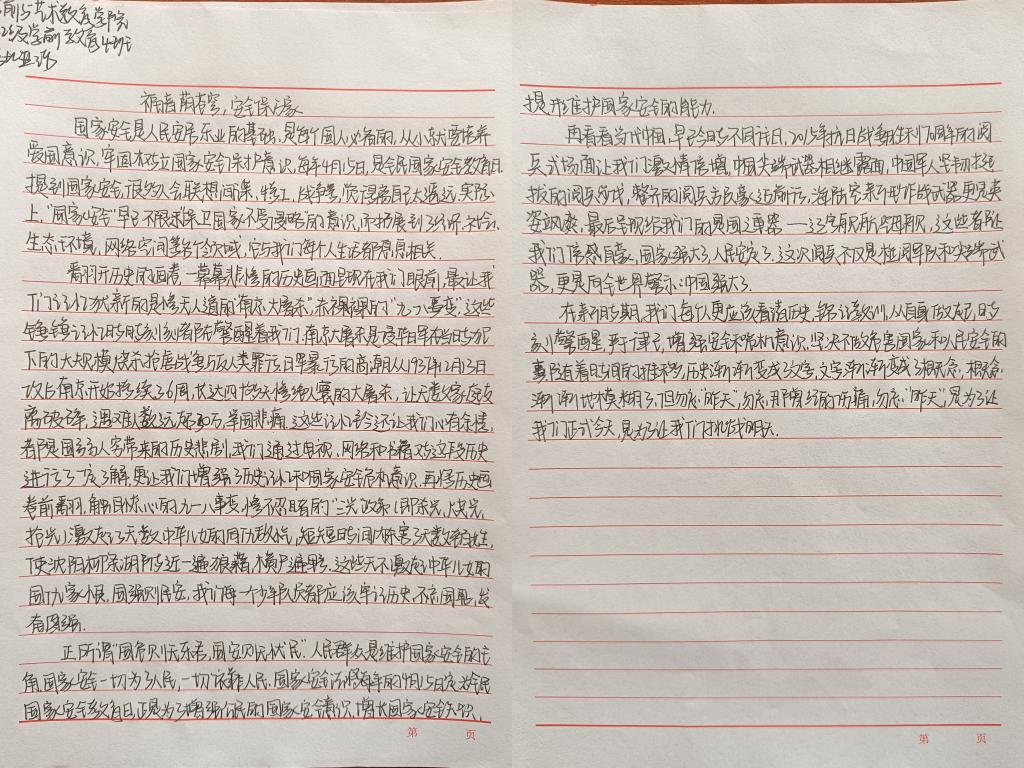 艺术教育学院
级学前教育4班
安全保家
国家安全是人民安居乐业的基础,是每个国人必备的,从小就要培养
爱国意识,牢固树立国家安全保护意识,每年4月15日,是全民国家安全教育日
提到国家安全,很多人会联想间谍、特工、战争等,觉得离自己太遥远.实际
上,“国家安全”早已不限于保卫国家不受侵略”的意识,而拓展到了经济、社会、
生态环境,网络空间等各个领域,它与我们每个人生活都息息相关.
翻开历史的画卷,一幕幕悲惨的历史画面呈现在我们眼前,最让我
们记忆犹新的是惨无人道的“南京大屠杀”,“九一八事变”,这些
记忆时时刻刻都警醒着我们.南京大屠杀是侵华日军在当时
下的大规模烧杀抢虐战争与反人类罪行,日军暴行的高潮从1937年12月13日
攻占南京开始持续了6周,长达四十多天惨绝人寰的大屠杀,让无数家庭支
离破碎,遇难人数远超30万,举国悲痛,这些记忆还让我们心有余悸,
都是国弱人穷带来的历史悲剧,我们通过电视、网络和书籍对这段历史
进行了了解,更让我们增强了历史记忆和国家安全危机意识.再将历史画
卷前翻,触目惊心的九一八事变,惨不忍睹的“三光政策(即杀光,烧光,
抢光)激起了无数中华儿女的同仇敌忾,短短时间内残害了无数的生,
使沈阳柳条湖附近一遍狼藉,横尸遍野.这些无不激起中华儿女的
国仇家恨.国强则民安.我们每一个少年队次都应该牢记历史,不忘国耻,发
奋图强.
正所谓“国危则无乐君,国安则无忧民”.人民群众是维护国家安全的主
角,国家安全一切为了人民,一切依靠人民.国家安全法将每年的4月15日定为全民
国家安全教育日,正是为了增强全民的国家安全意识,增长国家安全知识,
提升维护国家安全的能力.
再看看当代中国,早已今时不同往日,2015年抗日战争胜利70周年的阅
兵式场面让我们激情倍增,中国尖端武器相继露面,中国军人坚韧挺
拔的阅兵仪式,整齐的阅兵方队豪迈前行,海陆空来个型作战武器更是英
姿飒爽,最后呈现给我们的是国之重器——,这些都让
我们倍感自豪,国家强大了人民安定了.这次阅兵不仅是检阅军队和尖端武
器,更是向全世界展示:中国强大了.
在新时期,我们每个人更应该看清历史,铭记教训,从自身做起,时
刻警醒,严于律己,增强安全危机意识.坚决不做危害国家和人民安全的
事.历史渐渐变成文字,文字渐渐变成了概念,概念
渐渐地模糊了,但勿忘“昨天”,勿忘那曾经的伤痛,勿忘“昨天”,是为了让
我们正式今天,是为了让我们
第 页
第 页